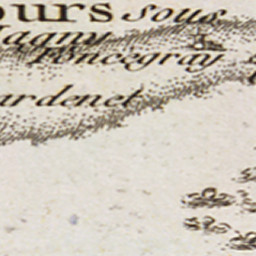 ours sous
agny
Foncegray
ardenet